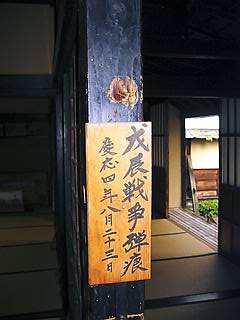 戊辰戦争弾痕
慶応四年八月二十三日